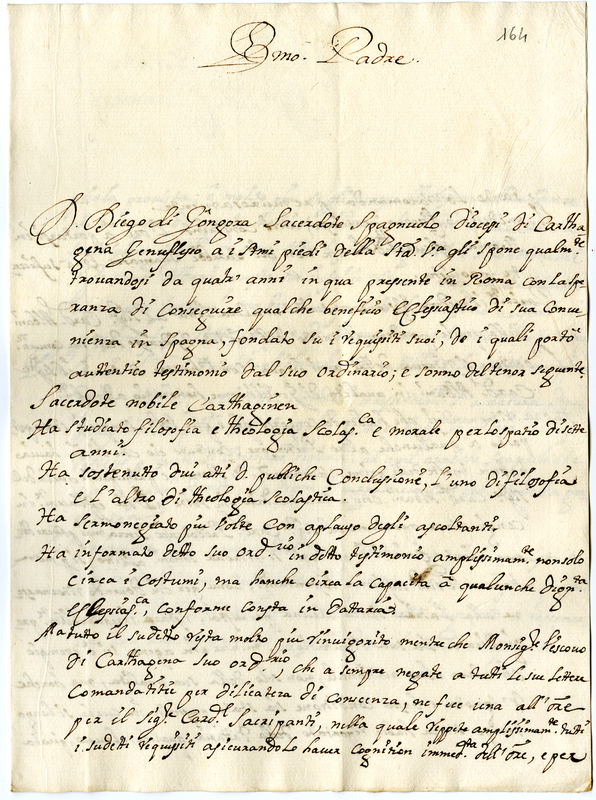 164
Bmo. Padre.
D. Diego di Gongora Sacerdote Spagnuolo Diocesi di Cartha
gena Genuflesso a i ssmi piedi della Stà. Va gli spone qualmte
trouandosi da quatr' anni in qua presente in Roma con la spe
ranza di Conseguire qualche beneficio Eclessiastico di sua Conue
nienza in Spagna, fondato su i requisiti suoi, de i quali portò
autentico testimonio dal suo ordinario; e sonno del tenor seguente.
Sacerdote nobile Carthaginen
Ha studiato filosofia e theologia Scolas.ca e morale per lo spatio di sette
anni.
Ha sostenuto dui ati d. publiche Conclussione, l'uno di filosofia
e l'altro di theologia Scolastica.
Ha sermonegiato piu volte con aplauso degli ascoltanti.
Ha informato detto suo ord.rio in detto testimonio amplissimam.te non solo
circa i Costumi, ma hanche circa la Capacita à qualunche dign.ta
Eclessias.ca, conforme consta in Dattaria.
Ma tutto il sudetto resta molto piu rinuigorito mentre che Monsigre Vescouo
di Carthagena suo ord.rio, che a sempre negate a tutti le sue lettere
Comandatitie per dilicateza di Conscenza, ne fece una all' ore
per il Sigre Card.l Sacripanti, nella quale reppite amplissimam.te tutti
i sudetti requisiti asicurandolo hauer Cognition immed.ta dell' ore, e per